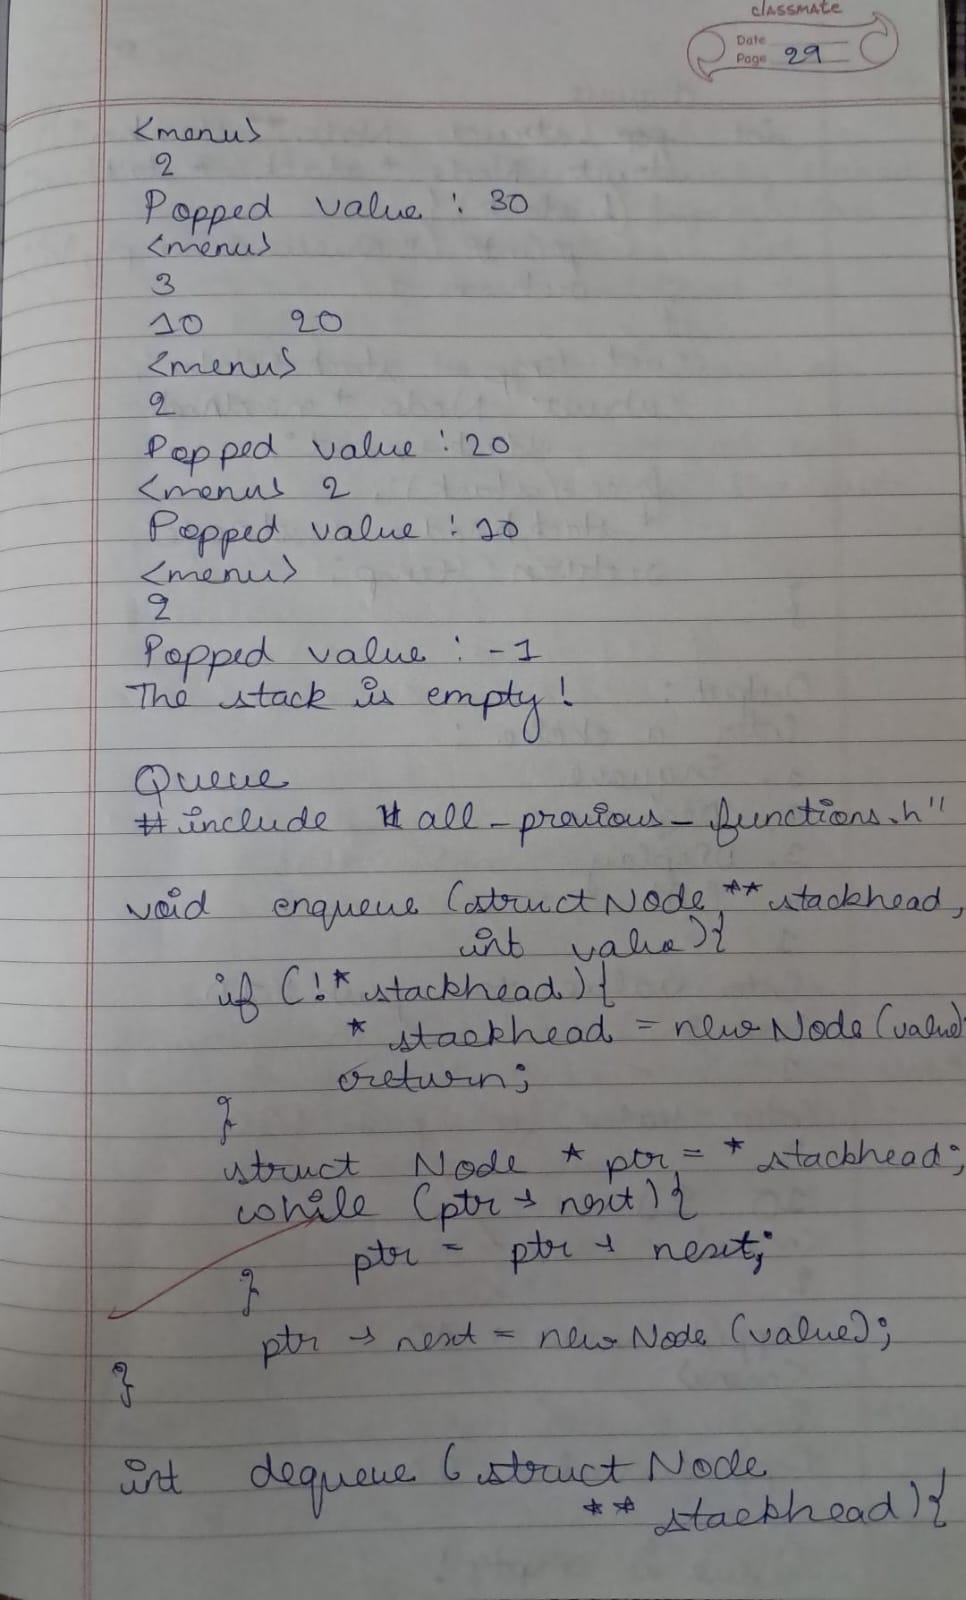 classmate
Date
Page 29
<menu>
2
Popped value : 30
<menu>
3
10 20
<menu>
2
Popped value : 20
<menu> 2
Popped value : 10
<menu>
2
Popped value : -1
The stack is empty!
Queue
#include "all_previous_functions.h"
void enqueue (struct Node ** stackhead,
int value){
if (!* stackhead){
* stackhead = newNode(value)
return;
}
struct Node * ptr = * stackhead;
while (ptr → next){
ptr = ptr → next;
}
ptr → next = newNode (value);
}
int dequeue (struct Node
** stackhead){